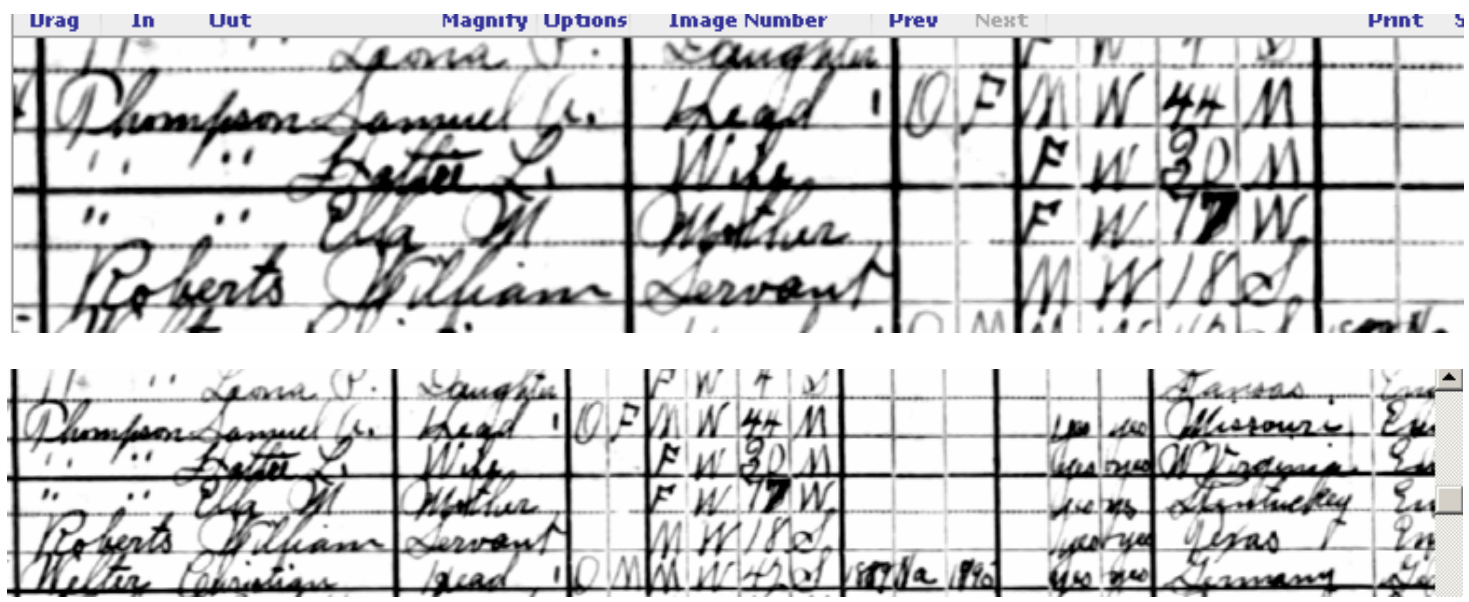 Drag In Out Magnify Options Image Number Prev Next Print S
" " Leona P. Daughter F W 4 S
Thompson Samuel Head 1 O F M W 44 M
" " Hattie L. Wife F W 30 M
" " Ella M Mother F W 77 W
Roberts William Servant M W 18 S
Leona P. Daughter F W 4 S Kansas
Thompson Samuel Head 1 O F M W 44 M yes yes Missouri
" " Hattie L. Wife F W 30 M yes yes W Virginia
" " Ella M Mother F W 77 W yes yes Kentucky
Roberts William Servant M W 18 S yes yes Texas
Welter Christian Head 1 O M M W 42 S 1889 Na 1895 yes yes Germany